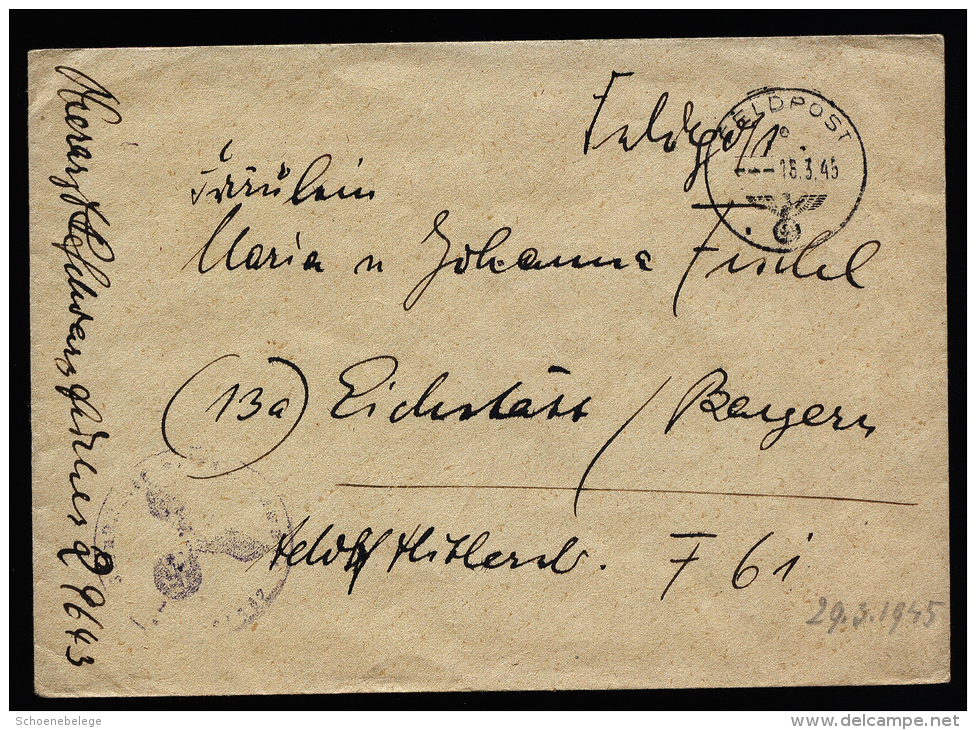 Feldpost
FELDPOST
18.3.45
Fräulein
Maria u Johanna Fischel
(13a) Eichstätt / Bayern
Adolf Hitlerstr. F 61
29.3.1945
29643
Schoenebelege
www.delcampe.net